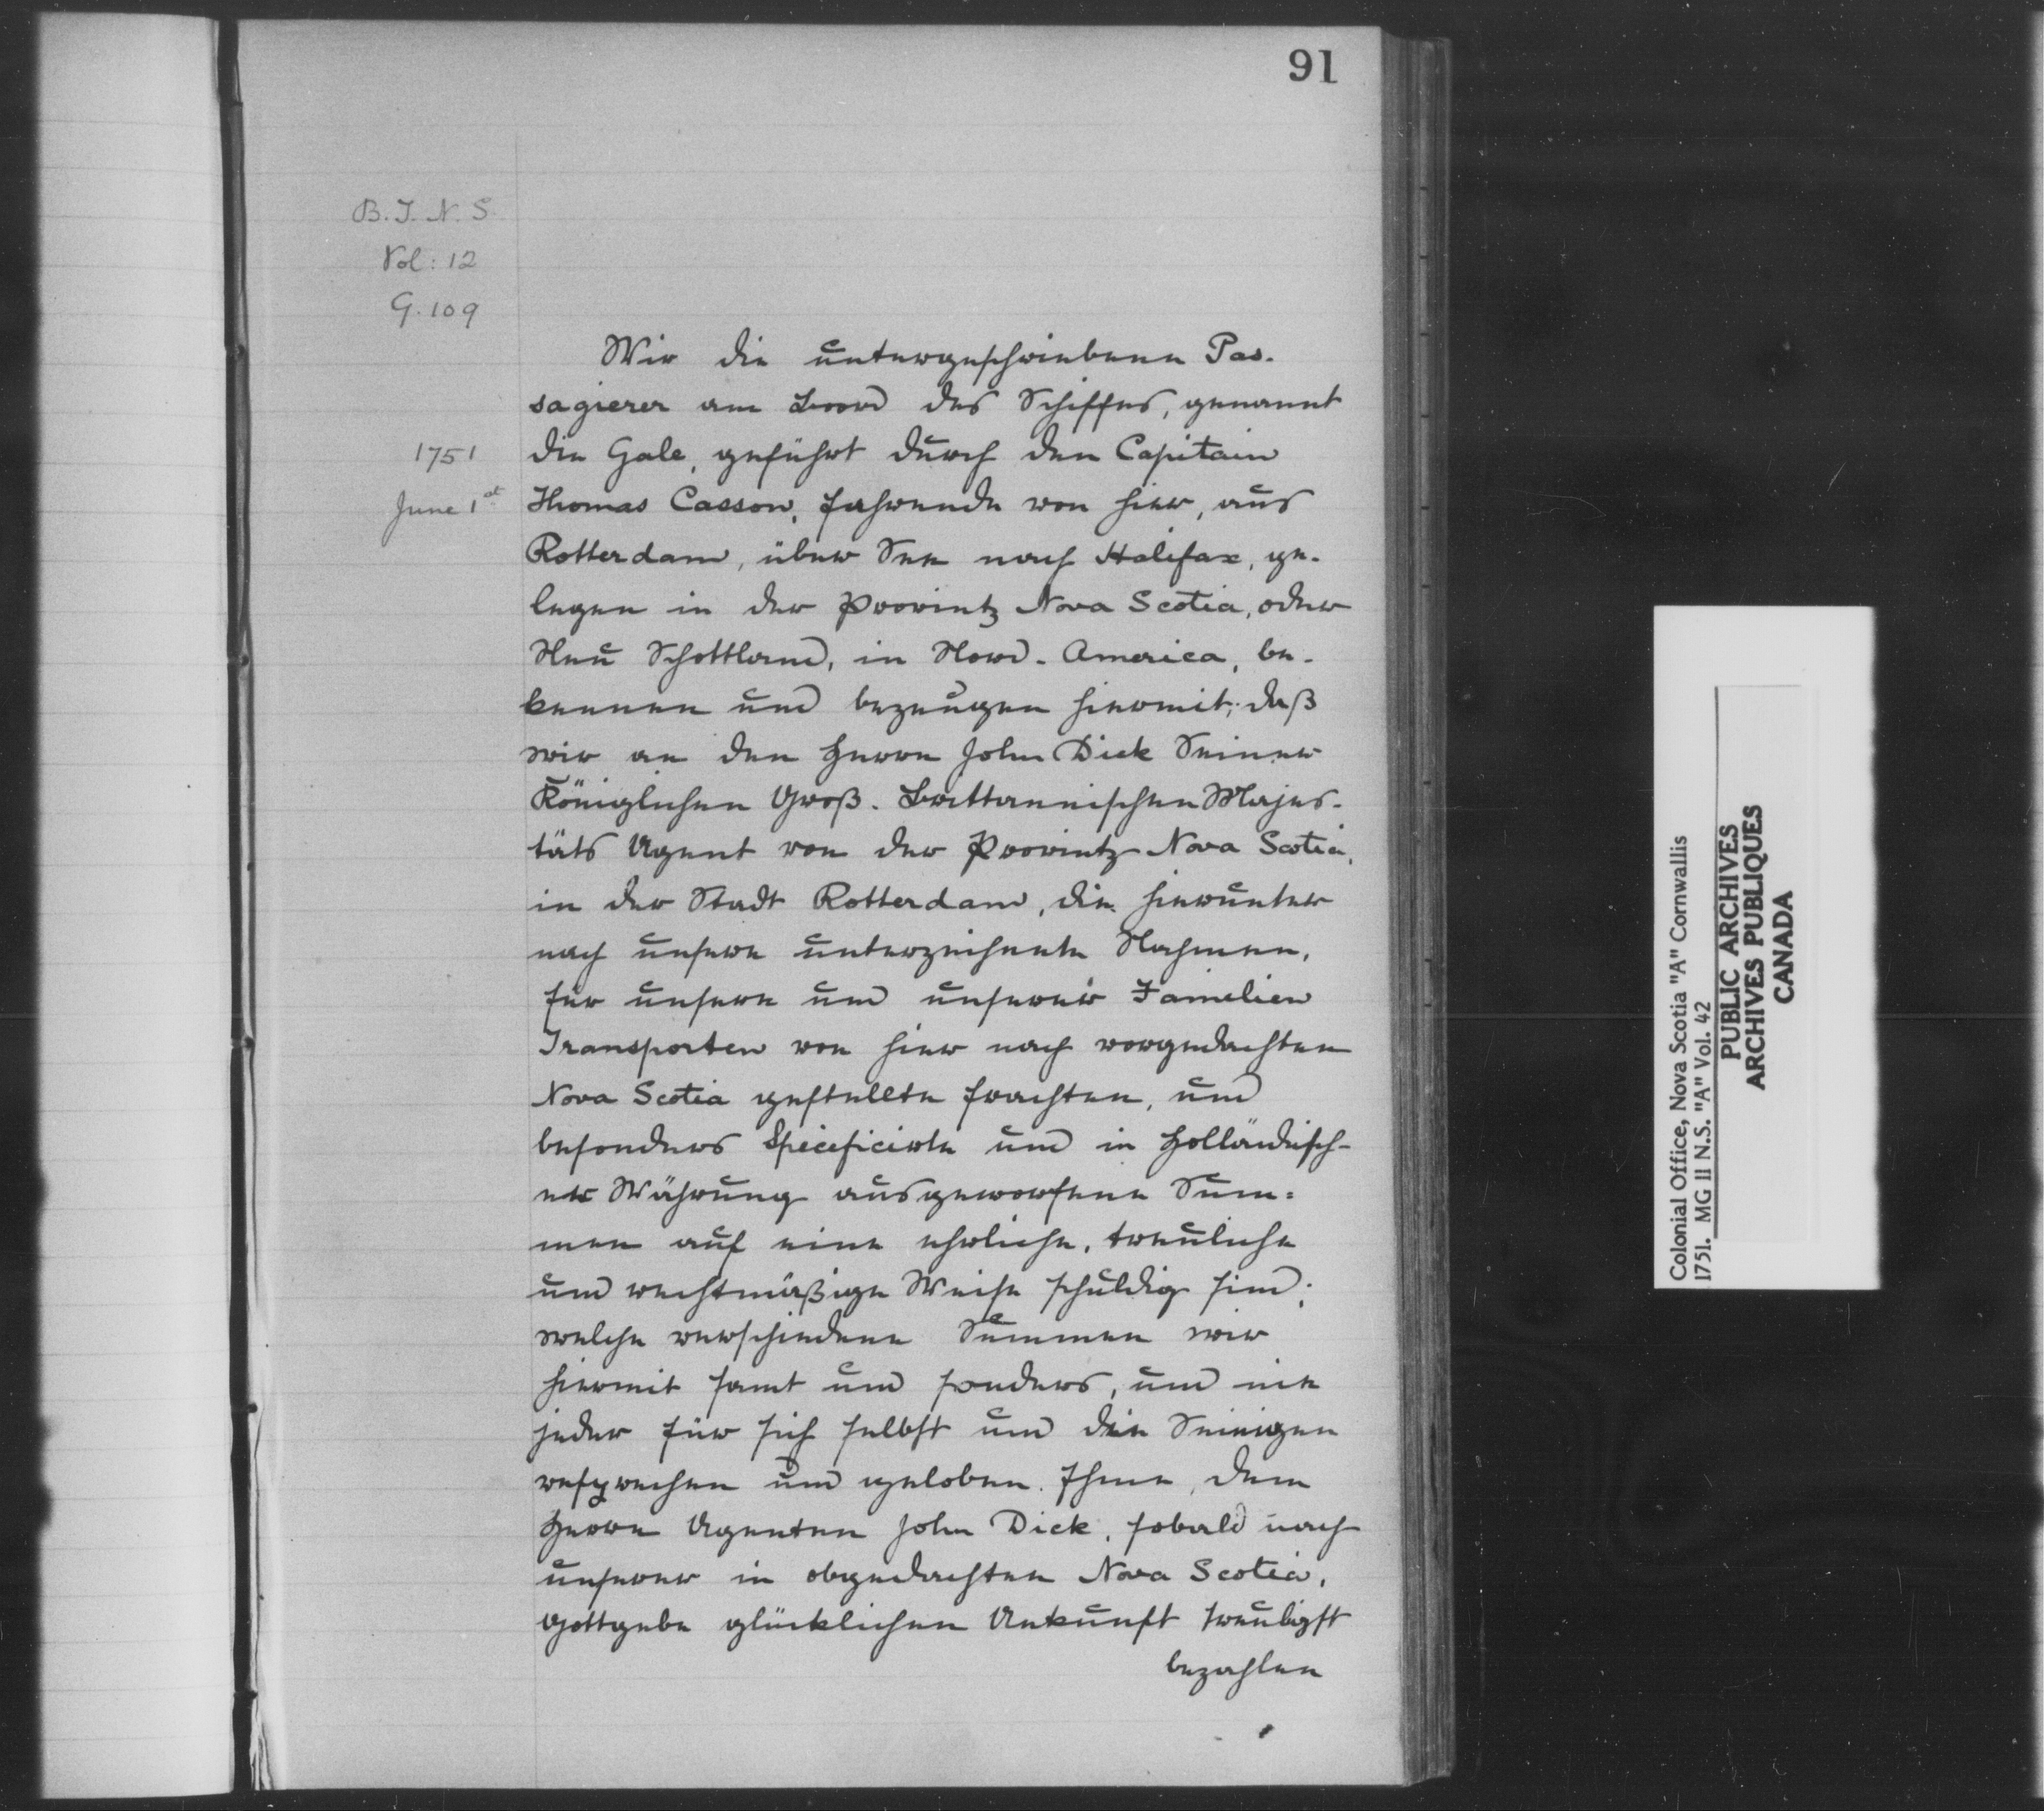 91
B.T.N.S.
Vol: 12
G. 109
1751
June 1st
Wir die untergeschriebene Pas-
sagierer am Boord des Schiffes, genannt
die Gale, geführt durch den Capitain
Thomas Casson, fahrende von hier, aus
Rotterdam, über See nach Halifax, ge-
legen in der Provintz Nova Scotia, oder
Neu Schottland, in Nord-America, be-
kennen und bezeugen hiermit; daß
wir an den Herrn John Dick Seiner
Königlichen Groß-Brittannischen Majes-
täts Agent von der Provintz Nova Scotia,
in der Stadt Rotterdam, die hierunter
nach unsere unterzeichnete Nahmen,
für unsere und unserer Familien
Transporten von hier nach vorgedachten
Nova Scotia gestellte frachten, und
besonders Specificirte und in Holländisch-
er Währung ausgeworfene Sum-
men auf eine ehrliche, treuliche
und rechtmäßige Weise schuldig sind;
welche verschiedene Summen wir
hiermit samt und sonders, und ein
jeder für sich selbst und die Seinigen
versprechen und geloben. Ihme, dem
Herrn Agenten John Dick, sobald nach
unserer in obgedachten Nova Scotia,
Gottgebe glücklichen Ankunft treuligst
bezahlen
Colonial Office, Nova Scotia "A" Cornwallis
1751. MG 11 N.S. "A" Vol. 42
PUBLIC ARCHIVES
ARCHIVES PUBLIQUES
CANADA